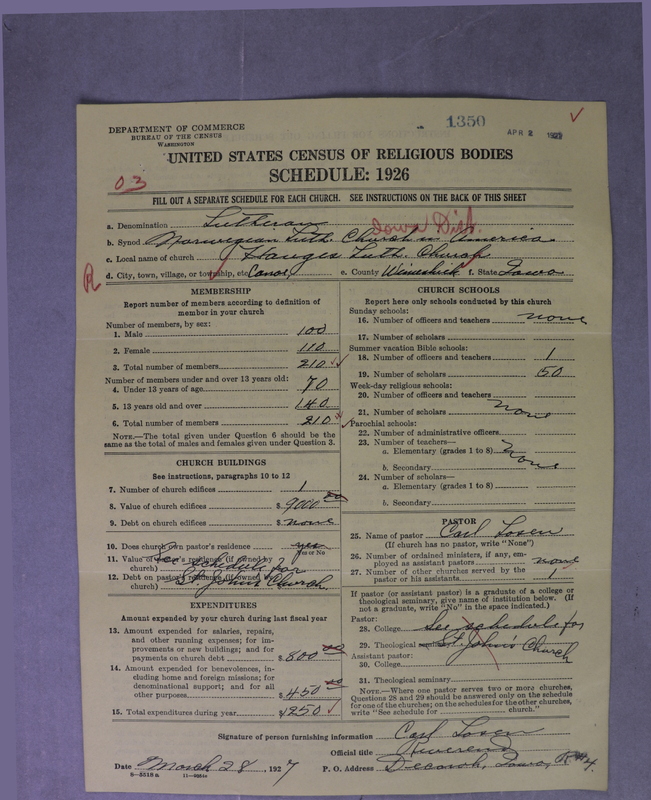 DEPARTMENT OF COMMERCE
BUREAU OF THE CENSUS
WASHINGTON
1350
APR 2 1927
UNITED STATES CENSUS OF RELIGIOUS BODIES
SCHEDULE: 1926
03
FILL OUT A SEPARATE SCHEDULE FOR EACH CHURCH. SEE INSTRUCTIONS ON THE BACK OF THIS SHEET
a. Denomination Lutheran
Iowa Dist.
b. Synod Norwegian Luth. Church in America
c. Local name of church Hauges Luth. Church
R
d. City, town, village, or township, etc. Canoe, e. County Winneshiek f. State Iowa
MEMBERSHIP
Report number of members according to definition of
member in your church
Number of members, by sex:
1. Male 100
2. Female 110
3. Total number of members 210
Number of members under and over 13 years old:
4. Under 13 years of age 70
5. 13 years old and over 140
6. Total number of members 210
NOTE.—The total given under Question 6 should be the
same as the total of males and females given under Question 3.
CHURCH BUILDINGS
See instructions, paragraphs 10 to 12
7. Number of church edifices 1
8. Value of church edifices $ 9000 00
9. Debt on church edifices $ none
10. Does church own pastor's residence yes
Yes or No
11. Value of pastor's residence (if owned by
church) See schedule for
12. Debt on pastor's residence (if owned by
church) St. John's Church
EXPENDITURES
Amount expended by your church during last fiscal year
13. Amount expended for salaries, repairs,
and other running expenses; for im-
provements or new buildings; and for
payments on church debt $ 800 00
14. Amount expended for benevolences, in-
cluding home and foreign missions; for
denominational support; and for all
other purposes $ 450 00
15. Total expenditures during year $ 1250
CHURCH SCHOOLS
Report here only schools conducted by this church
Sunday schools:
16. Number of officers and teachers none
17. Number of scholars
Summer vacation Bible schools:
18. Number of officers and teachers 1
19. Number of scholars 50
Week-day religious schools:
20. Number of officers and teachers
21. Number of scholars none
Parochial schools:
22. Number of administrative officers
23. Number of teachers—
a. Elementary (grades 1 to 8) none
b. Secondary
24. Number of scholars—
a. Elementary (grades 1 to 8)
b. Secondary
PASTOR
25. Name of pastor Carl Losen
(If church has no pastor, write "None")
26. Number of ordained ministers, if any, em-
ployed as assistant pastors none
27. Number of other churches served by the
pastor or his assistants 1
If pastor (or assistant pastor) is a graduate of a college or
theological seminary, give name of institution below. (If
not a graduate, write "No" in the space indicated.)
Pastor:
28. College See schedule for
29. Theological seminary St. John's Church
Assistant pastor:
30. College
31. Theological seminary
NOTE.—Where one pastor serves two or more churches,
Questions 28 and 29 should be answered only on the schedule
for one of the churches; on the schedules for the other churches,
write "See schedule for church."
Signature of person furnishing information Carl Losen
Official title Reverend
Date March 28, 1927 P. O. Address Decorah, Iowa, R#4.
8—5518a